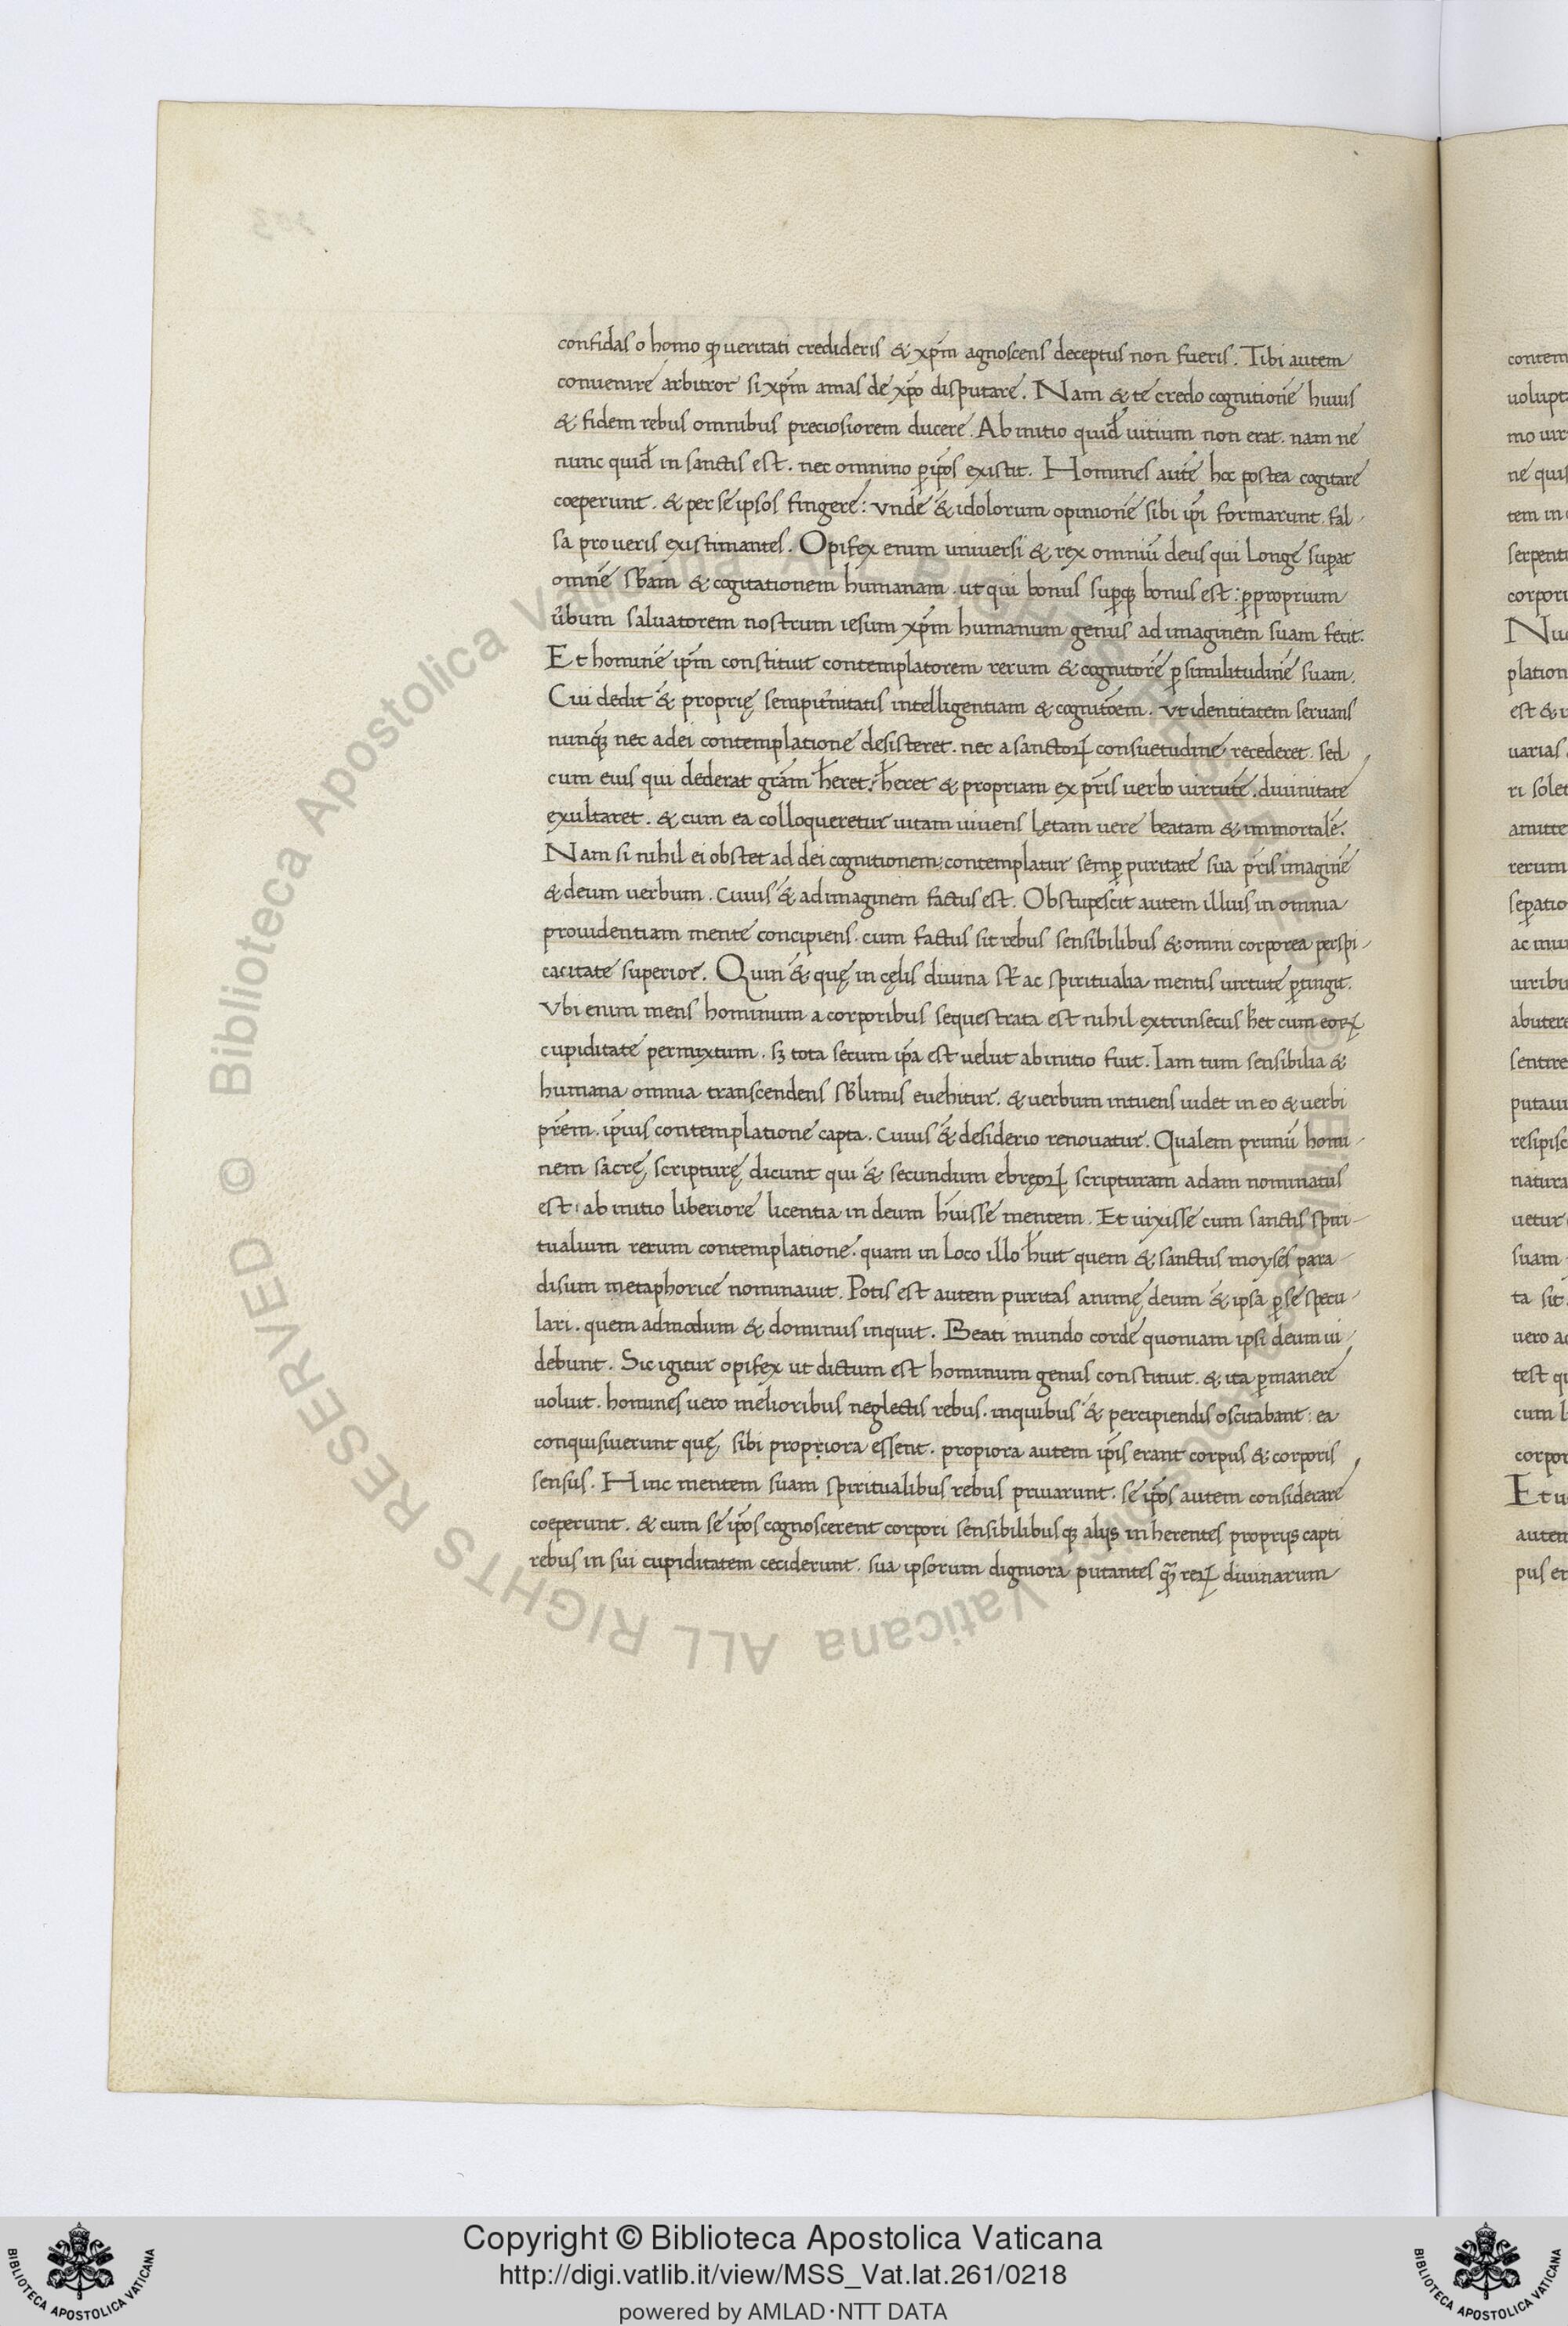 confidas o homo ꝙ ueritati credideris & xp̄m agnoscens deceptus non fueris. Tibi autem
conuenire arbitror si xp̄m amas de xp̄o disputare. Nam & te credo cognitionē huius
& fidem rebus omnibus preciosiorem ducere. Ab initio quid̄ uitium non erat. nam ne
nunc quid̄ in sanctis est. nec omnino ꝑ ip̄os existit. Homines autē hoc postea cogitare
coeperunt. & per se ipsos fingere: vnde & idolorum opinionē sibi ip̄i formarunt. fal-
sa pro ueris existimantes. Opifex enim uniuersi & rex omniū deus qui longe suꝑat
omnē sb̄am & cogitationem humanam. ut qui bonus suꝑqꝫ bonus est: ꝑ proprium
ūbum saluatorem nostrum iesum xp̄m humanum genus ad imaginem suam fecit.
Et hominē ip̄m constituit contemplatorem rerum & cognitorē ꝑ similitudinē suam.
Cui dedit & proprię sempit̄nitatis intelligentiam & cognitōem. vt identitatem seruans
nunqꝫ nec a dei contemplatione desisteret. nec a sanctoꝝ consuetudine recederet. sed
cum eius qui dederat grām h̄eret: h̄eret & propriam ex pr̄is uerbo uirtutē. diuinitate
exultaret. & cum ea colloqueretur uitam uiuens lętam uere beatam & immortalē.
Nam si nihil ei obstet ad dei cognitionem: contemplatur semꝑ puritate sua pr̄is imaginē
& deum uerbum. cuius & ad imaginem factus est. Obstupescit autem illius in omnia
prouidentiam mente concipiens. cum factus sit rebus sensibilibus & omni corporea perspi-
cacitate superior. Quin & quę in cęlis diuina st̄ ac spiritualia mentis uirtute ꝑtingit.
Vbi enim mens hominum a corporibus sequestrata est nihil extrinsecus h̄et cum eoꝝ
cupiditate permixtum. sꝫ tota secum ip̄a est uelut ab initio fuit. Iam tum sensibilia &
humana omnia transcendens sb̄limis euehitur. & uerbum intuens uidet in eo & uerbi
pr̄em. ip̄ius contemplatione capta. cuius & desiderio renouatur. Qualem primū homi-
nem sacrę scripturę dicunt qui & secundum ebręoꝝ scripturam adam nominatus
est: ab initio liberiore licentia in deum h̄uisse mentem. Et uixisse cum sanctis spiri-
tualium rerum contemplatione. quam in loco illo h̄uit quem & sanctus moyses para-
disum metaphorice nominauit. Potis est autem puritas animę deum & ipsa ꝑ se specu-
lari. quem admodum & dominus inquit. Beati mundo corde quoniam ipsi deum ui-
debunt. Sic igitur opifex ut dictum est hominum genus constituit. & ita ꝑmanere
uoluit. homines uero melioribus neglectis rebus. in quibus & percipiendis oscitabant: ea
conquisiuerunt quę sibi propriora essent. propiora autem ip̄is erant corpus & corporis
sensus. Hinc mentem suam spiritualibus rebus priuarunt. se ip̄os autem considerare
coeperunt. & cum se ip̄os cognoscerent corpori sensibilibusqꝫ alijs inherentes proprijs capti
rebus in sui cupiditatem ceciderunt. sua ipsorum digniora putantes qꝫ̄ reꝝ diuinarum
contem
uolupt
mo uir
ne quis
tem in
serpent
corpori
Nu
plation
est & u
uarias
ri solet
amitte
rerum
seꝑatio
ac mu
uiribu
abutere
sentire
putaui
resipisc
natura
uetur
suam
ta sit
uero a
test q
cum
corpor
Et u
autem
pus er
© Biblioteca Apostolica Vaticana ALL RIGHTS RESERVED © Biblioteca Apostolica Vaticana ALL RIGHTS RESERVED
Copyright © Biblioteca Apostolica Vaticana
http://digi.vatlib.it/view/MSS_Vat.lat.261/0218
powered by AMLAD·NTT DATA
BIBLIOTECA APOSTOLICA VATICANA
BIBLIOTECA APOSTOLICA VATICANA